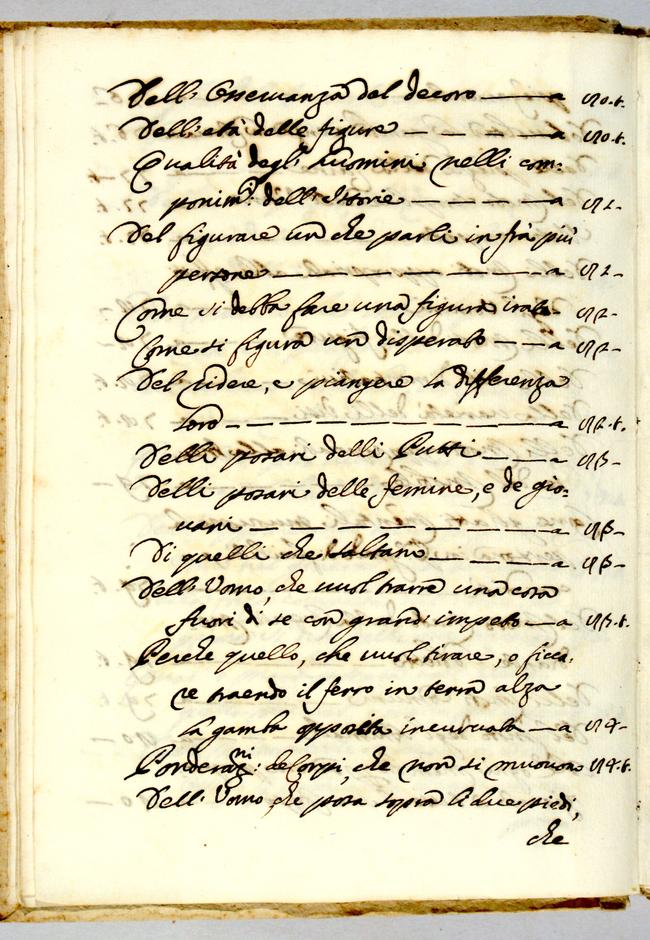 Dell' Osservanza del decoro ——— a 90.t.
Dell' età delle figure — — — — a 90.t.
Qualità degl' huomini nelli com:
ponim.ti dell' Istorie — — — — a 91-
Del figurare un che parli infrà più
persone — — — — — — — a 91-
Come si debba fare una figura irata- 92-
Come si figura un disperato — — a 92-
Del ridere, e piangere la differenza
loro — — — — — — — — a 92.t.
Delli posari delli Putti — — — a 93-
Delli posari delle femine, e de gio:
vani — — — — — — — — a 93-
Di quelli che saltano — — — — a 93-
Dell' Uomo, che vuol trarre una cosa
fuori di se con grand' impeto — a 93.t.
Perche quello, che vuol tirare, o ficca:
re traendo il ferro in terra alza
la gamba opposita incurvata — a 94-
Ponderaz.ni: de Corpi, che non si muovono 94.t.
Dell' Uomo, che posa sopra li due piedi,
che